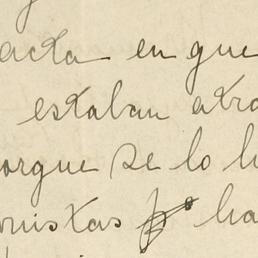 acta en que
estaban atra
orque se lo h
nistas ha